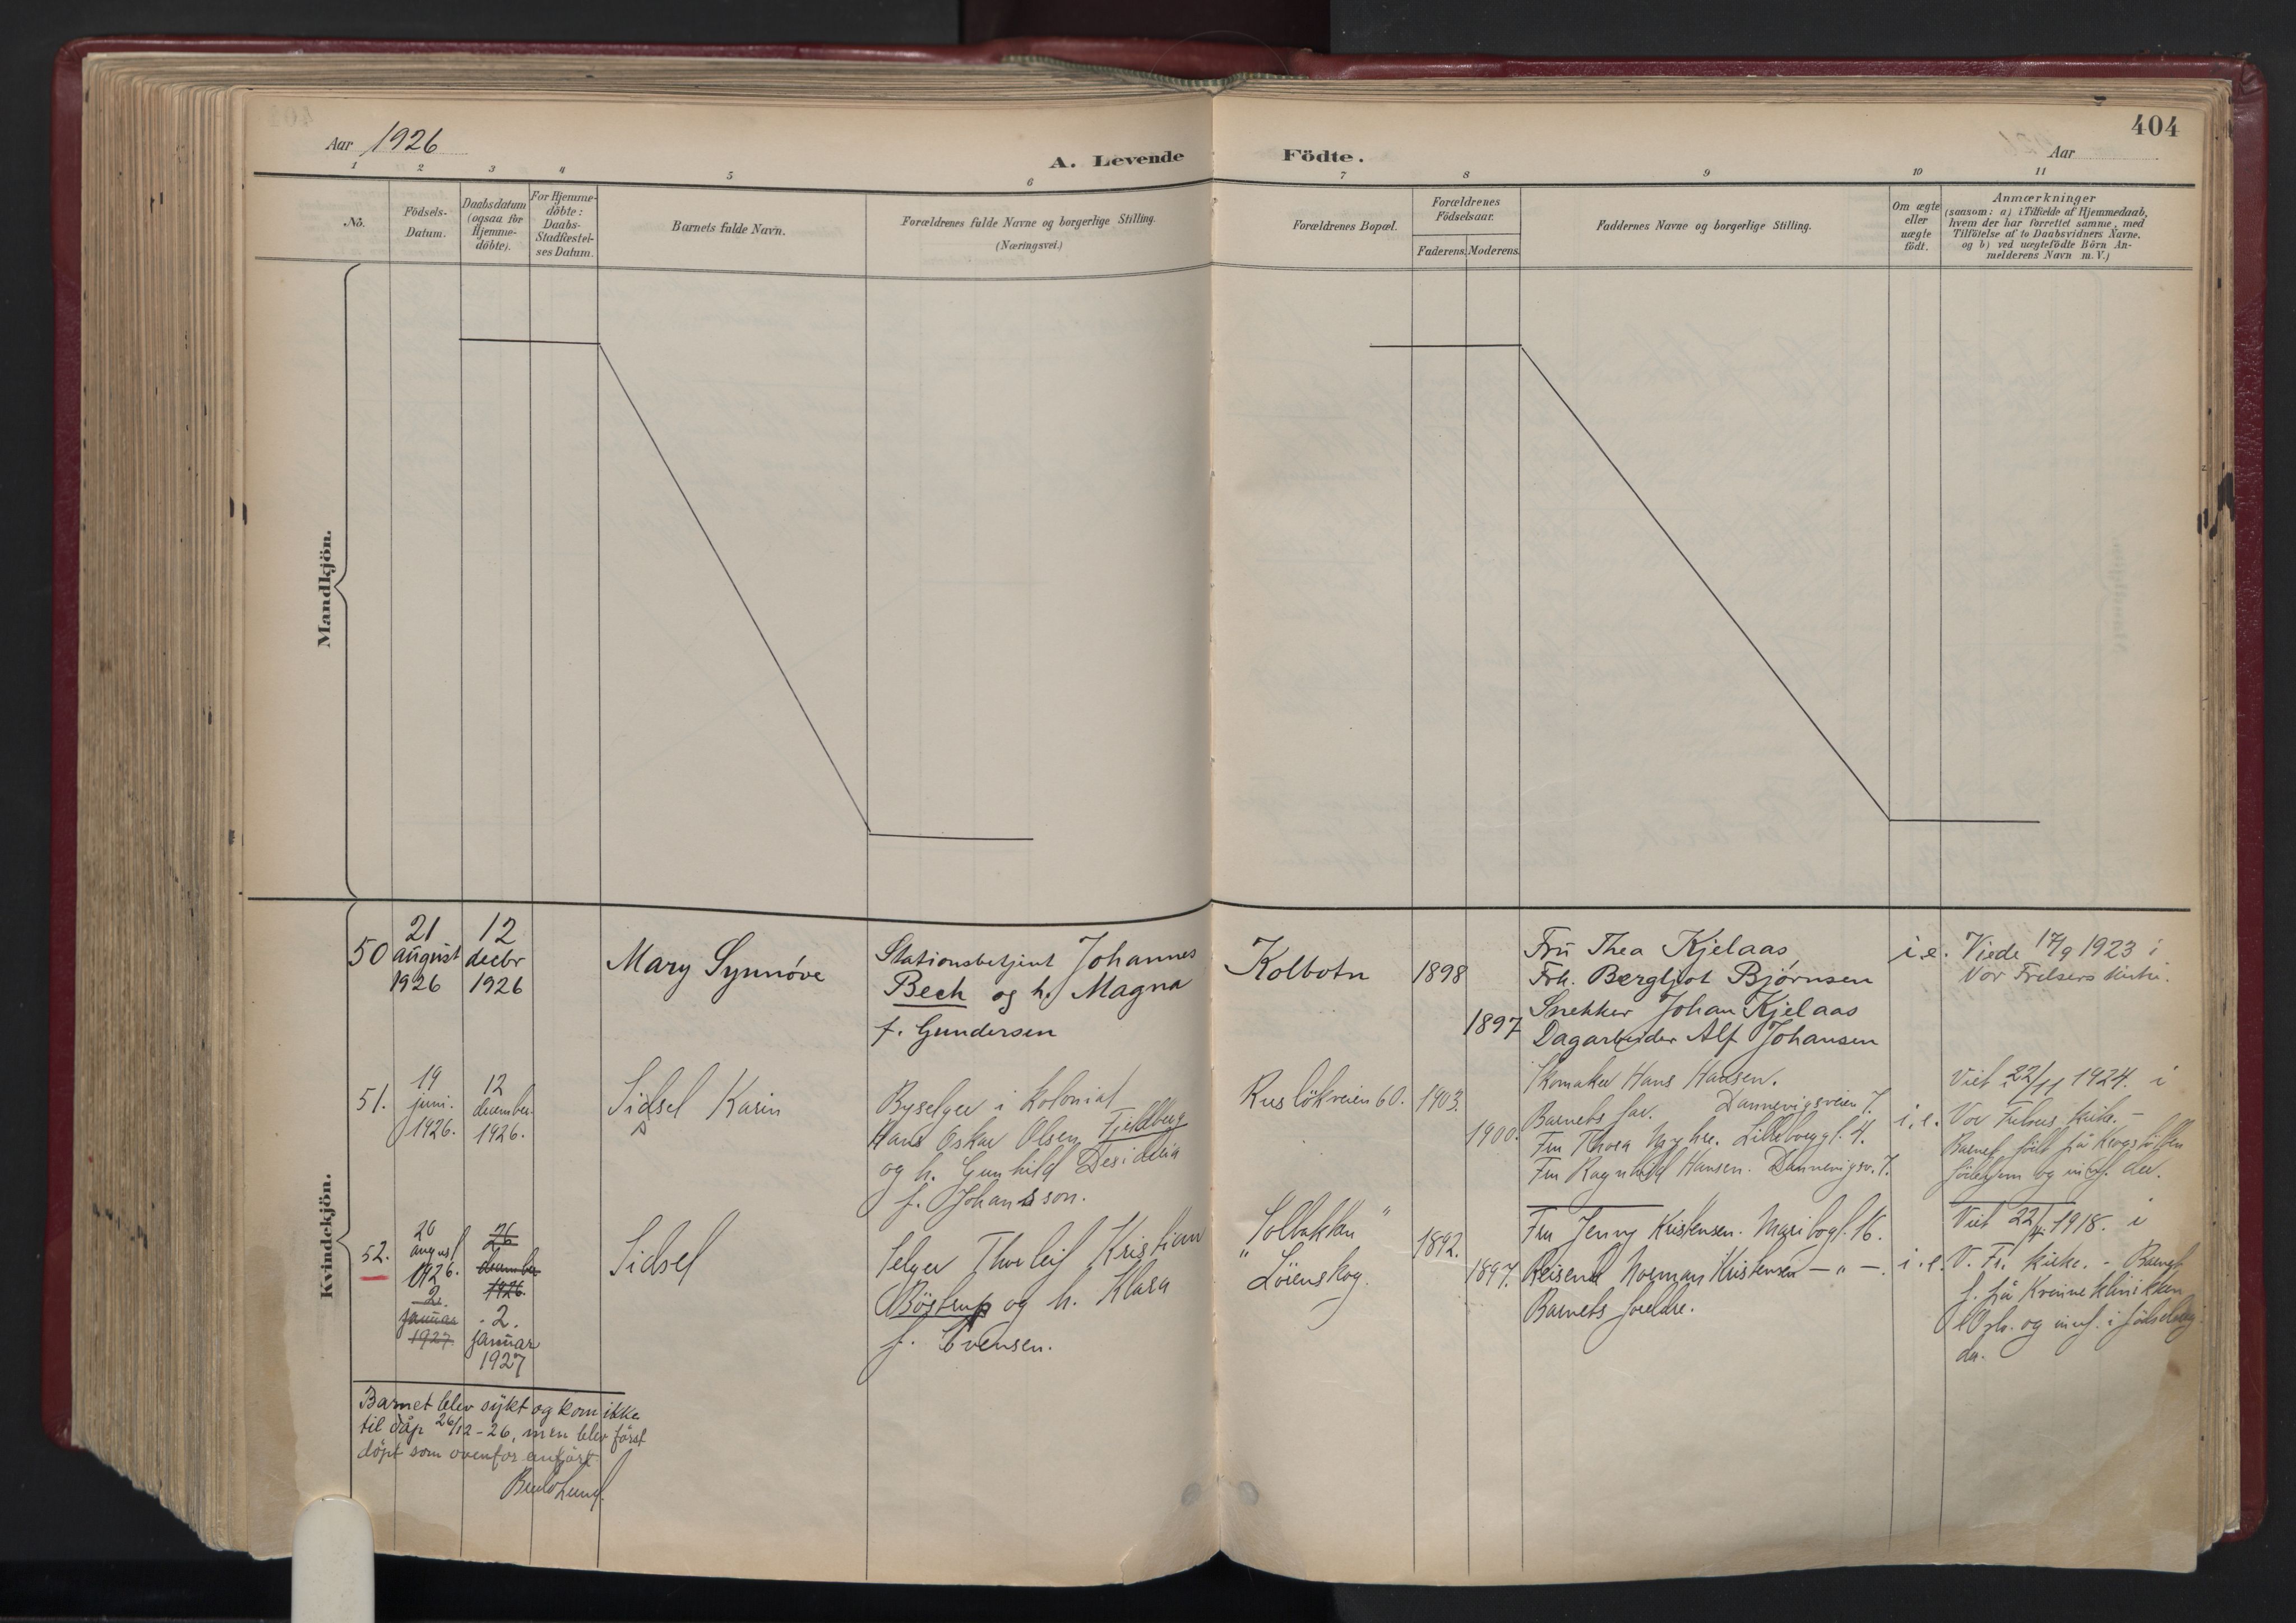 404
Aar 1926
A. Levende Födte.
Aar
1 2 3 4 5 6 7 8 9 10 11
No.
Födsels-
Datum.
Daabsdatum
(ogsaa for
Hjemme-
döbte).
For Hjemme-
döbte:
Daabs-
Stadfæstel-
ses Datum.
Barnets fulde Navn.
Forældrenes fulde Navne og borgerlige Stilling.
(Næringsvei.)
Forældrenes Bopæl.
Forældrenes
Födselsaar.
Faderens. Moderens.
Faddernes Navne og borgerlige Stilling.
Om ægte
eller
uægte
födt.
Anmærkninger
(saasom: a) i Tilfælde af Hjemmedaab,
hvem der har forrettet samme, med
Tilföielse af to Daabsvidners Navne.
og b) ved uægtefödte Börn An-
melderens Navn m. V.)
Mandkjön.
Kvindekjön.
50
21
august
1926
12
decbr
1926
Mary Synnøve
Stationsbetjent Johannes
Bech og h. Magna
f. Gundersen
Kolbotn
1898
1897
Fru Thea Kjelaas
Frk. Bergljot Bjørnsen
Snekker Johan Kjelaas
Dagarbeider Alf Johansen
i.e.
Viede 17/9 1923 i
Vor Frelsers kirke.
51.
19
juni.
1926.
12
december.
1926.
Sidsel Karin
Byselger i kolonial
Hans Oskar Olsen Fjeldberg
og h. Gunhild Desideria
f. Johansson.
Ruslökveien 60.
1903.
1900.
Skomaker Hans Hansen.
Dannevigsveien 7.
Barnets far.
Fru Thora Myhre. 4.
Fru Ragnhild Hansen. Dannevigsv. 7.
i.e.
Viet 22/11 1924. i
Vor Frelsers kirke. -
Barnet födt på
födehjem og der.
52.
20
august
1926.
2.
januar
1927.
26
december
1926.
2.
januar
1927
Sidsel
Selger Thorleif Kristian
Böstrup og h. Klara
f. Evensen.
"Solbakken"
Lörenskog.
1892.
1897.
Fru Jenny Kristensen. Maribogt. 16.
Reisende Norman Kristensen — " —.
Barnets foreldre.
i.e.
Viet 1918. i
V. Fr. kirke. - Barnet
f. på Kvinneklinikken
Oslo. og i
der.
Barnet blev sykt og kom ikke
til dåp 26/12-26, men blev først
döpt som ovenfor anfört.